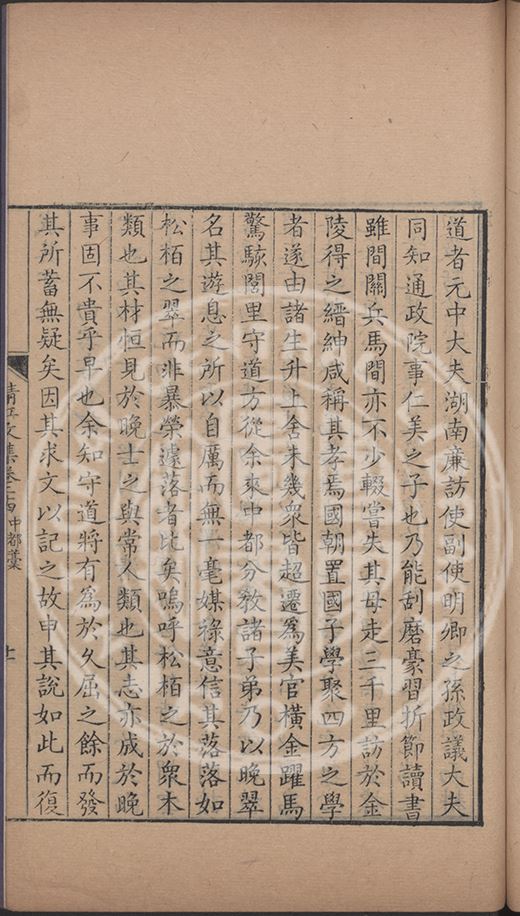 道者元中大夫湖南廉訪使副使明卿之孫政議大夫
同知通政院事仁美之子也乃能刮磨豪習折節讀書
雖間關兵馬間亦不少輟嘗失其母走三千里訪於金
陵得之縉紳咸稱其孝焉國朝置國子學聚四方之學
者遂由諸生升上舍未幾衆皆超遷爲美官橫金躍馬
驚駭閭里守道方從余來中都分敎諸子弟乃以晚翠
名其遊息之所以自厲而無一毫媒祿意信其落落如
松栢之翠而非暴榮遽落者比矣嗚呼松栢之於衆木
類也其材恒見於晚士之與常人類也其志亦成於晚
事固不貴乎早也余知守道將有爲於久屈之餘而發
其所蓄無疑矣因其求文以記之故申其說如此而復
清江文集卷二十四中都藁 十一